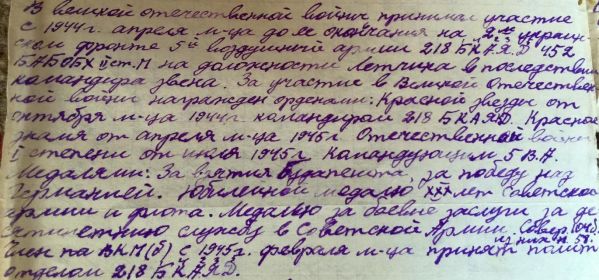 В великой отечественной войне принимал участие
с 1944 г. апреля м-ца до её окончания на 2м украин
ском фронте 5й воздушной армии 218 БКАЯД 452
БАБОБХ II ст. М на должности летчика в последствии
командира звена. За участие в Великой Отечествен
ной войни награжден орденами: Красной звезды от
октября м-ца 1944 г. командирам 218 БКАЯД. Красное
знамя от апреля м-ца 1945 г. Отечественной войны
I степени от июля 1945 г. Командующим 5 В.А.
Медалями: За взятия Будапешта, за победу над
Германией. Юбилейной медалью XXX лет Советской
армии и флота. Медалью за боевые заслуги за де
сятилетнию службу в Советской Армии. Совер. 104 б.
из них н. 58.
Член па ВКП(б) с 1945 г. февраля м-ца принят полит
отделом 218 БКАЯД.